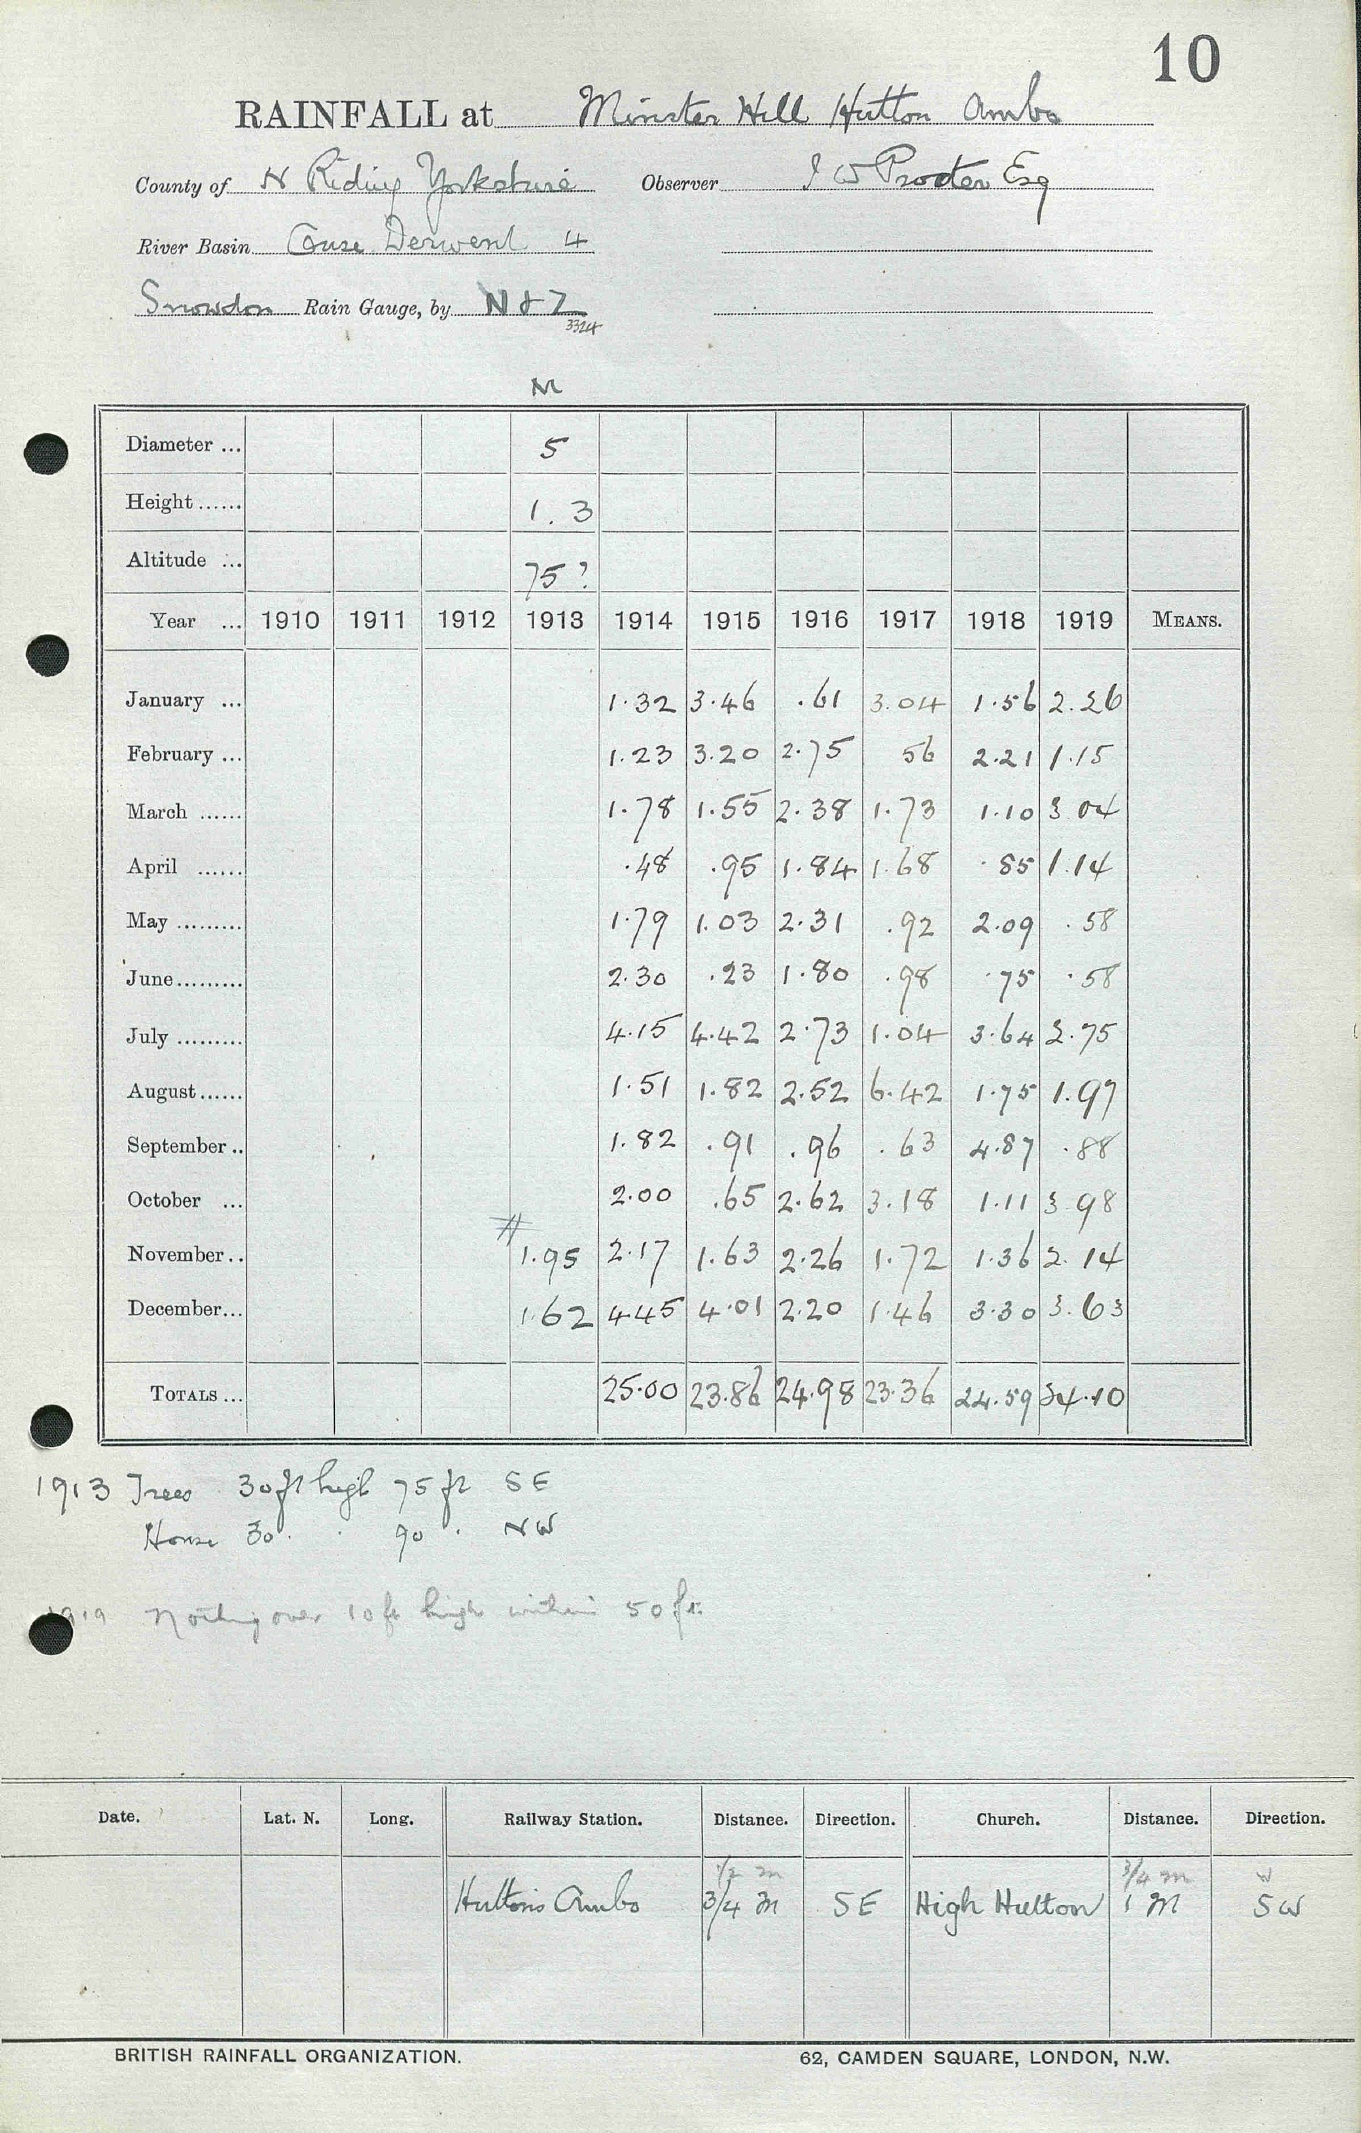 10
RAINFALL at Minster Hill Hutton Ambo
County of N Riding Yorkshire Observer J W Procter Esq
River Basin Ouse Derwent 4
Snowdon Rain Gauge, by N & Z
3324
M
Diameter ... 5
Height ...... 1.3
Altitude ... 75?
Year ... 1910 1911 1912 1913 1914 1915 1916 1917 1918 1919 MEANS.
January ... 1.32 3.46 .61 3.04 1.56 2.26
February ... 1.23 3.20 2.75 56 2.21 1.15
March ...... 1.78 1.55 2.38 1.73 1.10 3 04
April ...... .48 .95 1.84 1.68 .85 1.14
May ......... 1.79 1.03 2.31 .92 2.09 .58
June ......... 2.30 .23 1.80 .98 .75 .58
July ......... 4.15 4.42 2.73 1.04 3.64 2.75
August ...... 1.51 1.82 2.52 6.42 1.75 1.97
September .. 1.82 .91 .96 .63 4.87 .88
October ... 2.00 .65 2.62 3.18 1.11 3.98
November .. # 1.95 2.17 1.63 2.26 1.72 1.36 2.14
December ... 1.62 4.45 4.01 2.20 1.46 3.30 3.63
TOTALS ... 25.00 23.86 24.98 23.36 24.59 24.10
1913 Trees 30 ft high 75 ft SE
House 30 . . 90 . NW
1919 Nothing over 10 ft high within 50 ft.
Date. Lat. N. Long. Railway Station. Distance. Direction. Church. Distance. Direction.
1/2 m 3/4 m W
Huttons Ambo 3/4 M SE High Hutton 1 M SW
BRITISH RAINFALL ORGANIZATION. 62, CAMDEN SQUARE, LONDON, N.W.